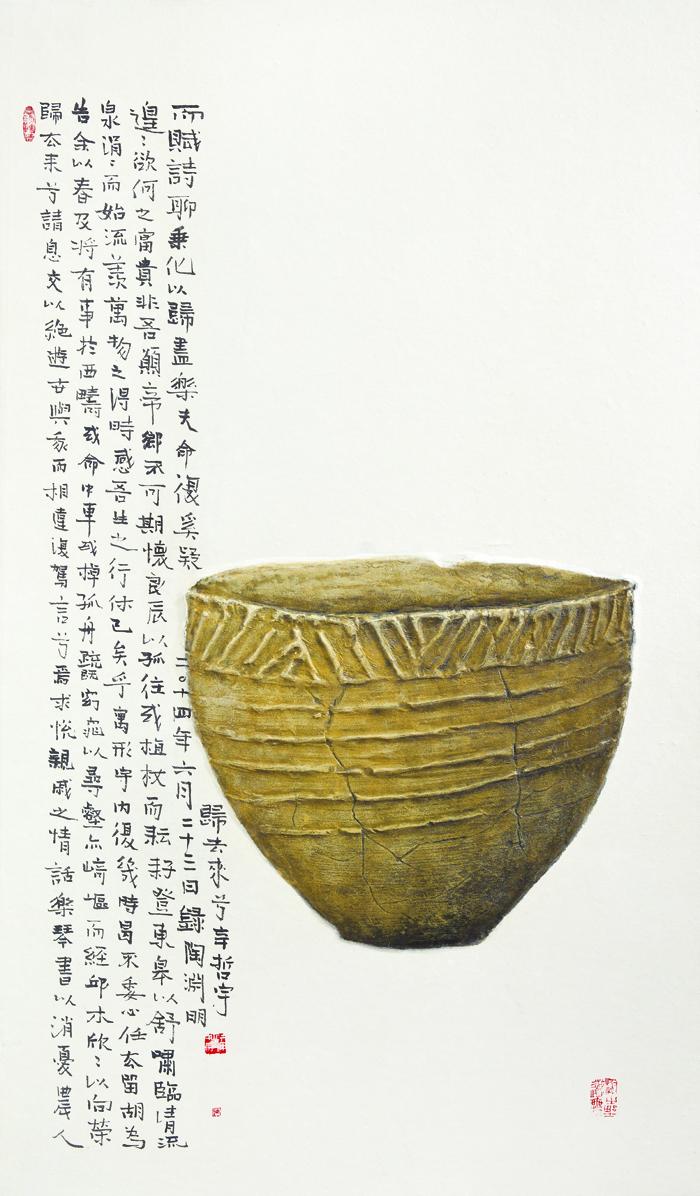 歸去来兮請息交以絶遊世與我而相違復駕言兮焉求悅親戚之情話樂琴書以消憂農人
告余以春及將有事於西疇或命巾車或棹孤舟既窈窕以尋壑亦崎嶇而經邱木欣：以向榮
泉涓：而始流羨萬物之得時感吾生之行休已矣乎寓形宇内復幾時曷不委心任去留胡為
遑：欲何之富貴非吾願帝鄉不可期懷良辰以孤往或植杖而耘耔登東皋以舒嘯臨清流
而賦詩聊乘化以歸盡樂夫命復奚疑
二〇十四年六月二十三日錄陶淵明
歸去來兮辛哲宇